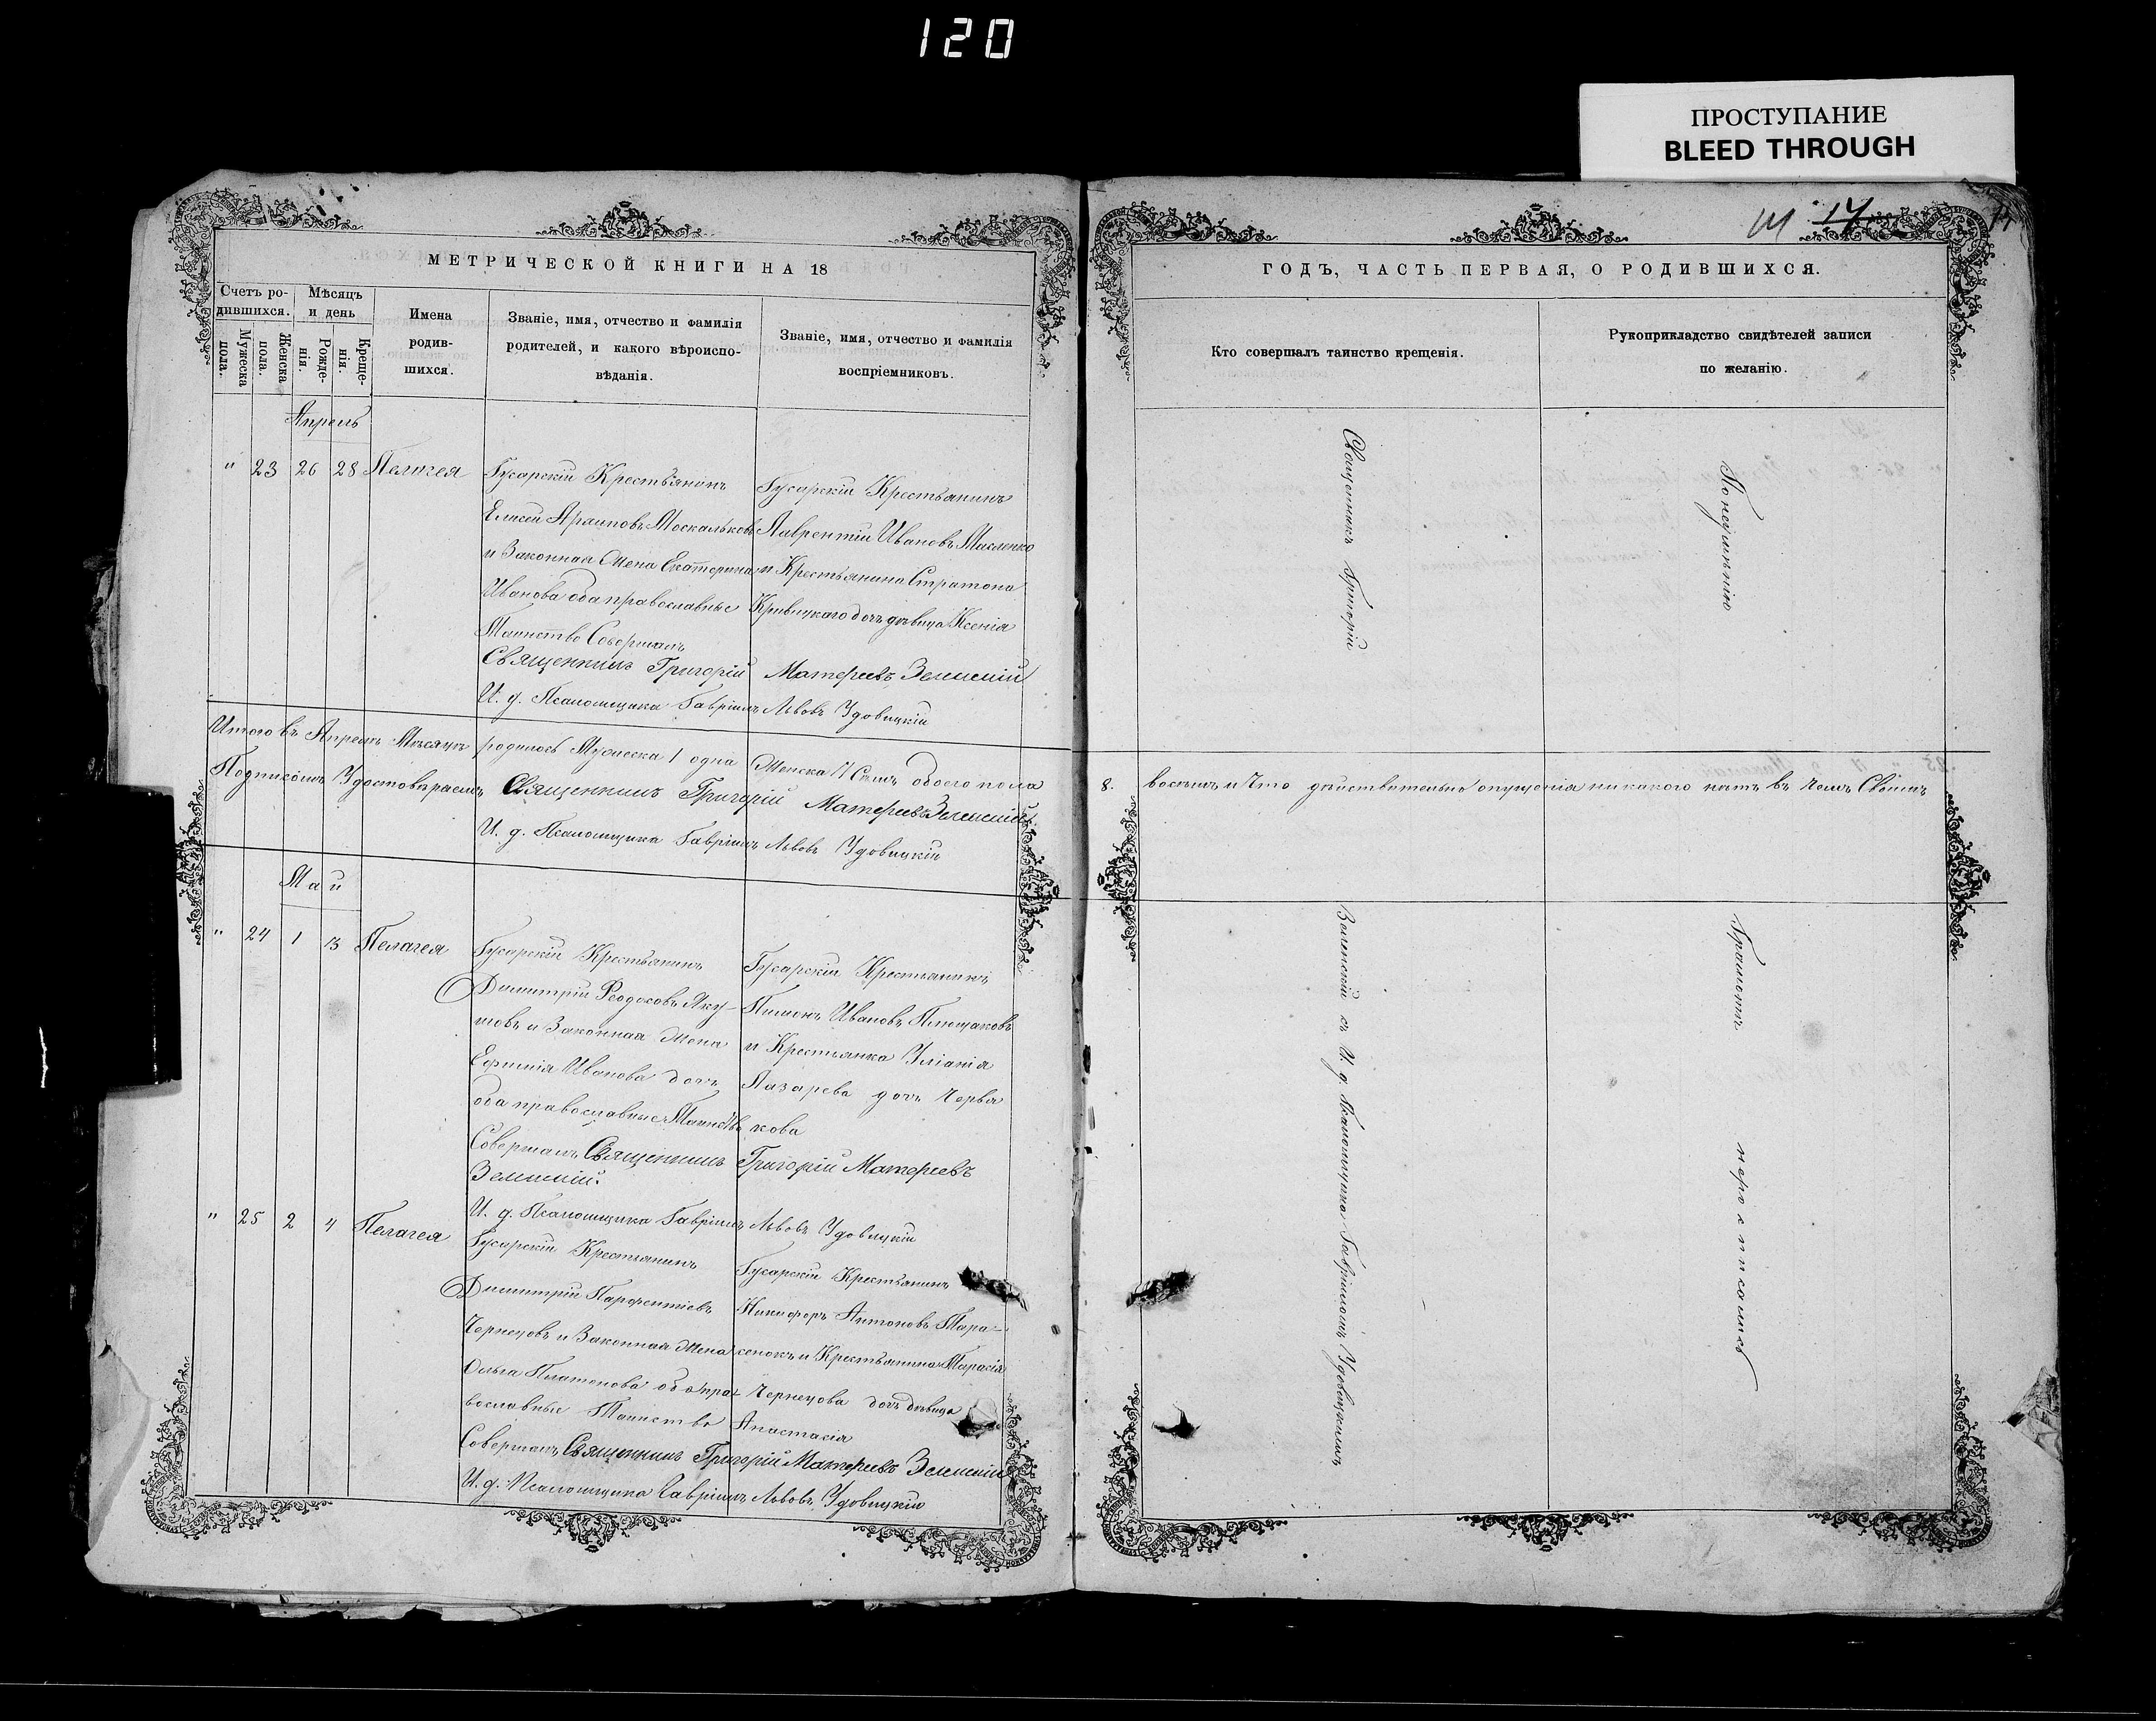 120
ПРОСТУПАНИЕ
BLEED THROUGH
14
МЕТРИЧЕСКОЙ КНИГИ НА 18
Счетъ родившихся.
Мужеска пола.
Женска пола.
Мѣсяцъ и день
Рожденія.
Крещенія.
Имена
родив-
шихся.
Званіе, имя, отчество и фамилія
родителей, и какого вѣроиспо-
вѣданія.
Званіе, имя, отчество и фамилія
воспріемниковъ.
Апрель
" 23 26 28 Пелагея
Гусарскій Крестьянинъ
Елисей Москальковъ
и Законная Жена Екатерина
Иванова оба православные
Таинство Совершалъ
Гусарскій Крестьянинъ
Лаврентій Ивановъ
и Крестьянина Стратона
Кривицкаго дочь дѣвица Ксенія
Священникъ Григорій Матереевъ
И. д. Псаломщика Гавріилъ Львовъ Удовицкій
Итого въ Апрелѣ Мѣсяцѣ родилось Мужеска 1 одна Женска 7 Семь обоего пола
Подписомъ Удостовѣряемъ Священникъ Григорій Матереевъ
И. д. Псаломщика Гавріилъ Львовъ Удовицкій
Май
" 24 1 13 Пелагея
Гусарскій Крестьянинъ
Димитрій Яку-
и Законная Жена
Иванова дочь
оба православные
Совершалъ
Гусарскій Крестьянинъ
Ивановъ
и Крестьянка Уліанія
Лазарева дочь Червя
кова
Священникъ Григорій Матереевъ
И. д. Псаломщика Гавріилъ Львовъ Удовицкій
" 25 2 4 Пелагея
Гусарскій Крестьянинъ
Димитрій Парфентіевъ
Чернецовъ и Законная Жена
Ольга Платонова оба пра-
вославные Таинство
Совершалъ
Гусарскій Крестьянинъ
Никифоръ Антоновъ Тара-
сенокъ и Крестьянина Тарасія
Чернецова дочь дѣвица
Анастасія
Священникъ Григорій Матереевъ
И. д. Псаломщика Гавріилъ Львовъ Удовицкій
ГОДЪ, ЧАСТЬ ПЕРВАЯ, О РОДИВШИХСЯ.
Кто совершалъ таинство крещенія.
Рукоприкладство свидѣтелей записи
по желанію.
Священникъ Григорій
8. восемь и Что дѣйствительно опущенія никакого нѣтъ въ чемъ
съ И. д. Псаломщика Гавріиломъ Удовицкимъ
По неумѣнію
Грамотѣ